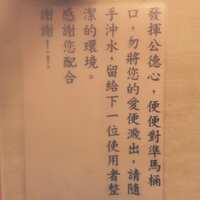 發揮公德心，便便對準馬桶
口，勿將您的愛便濺出，請隨
手沖水，留給下一位使用者整
潔的環境。
感謝您配合
謝謝